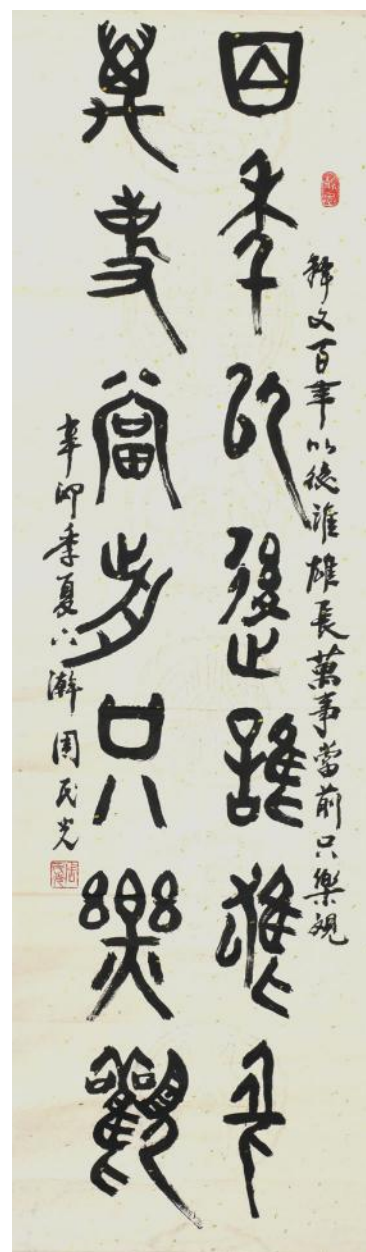 釋文百年以後誰雄長萬事當前只樂觀
百年以後誰雄長
萬事當前只樂觀
辛卯季夏 周民光